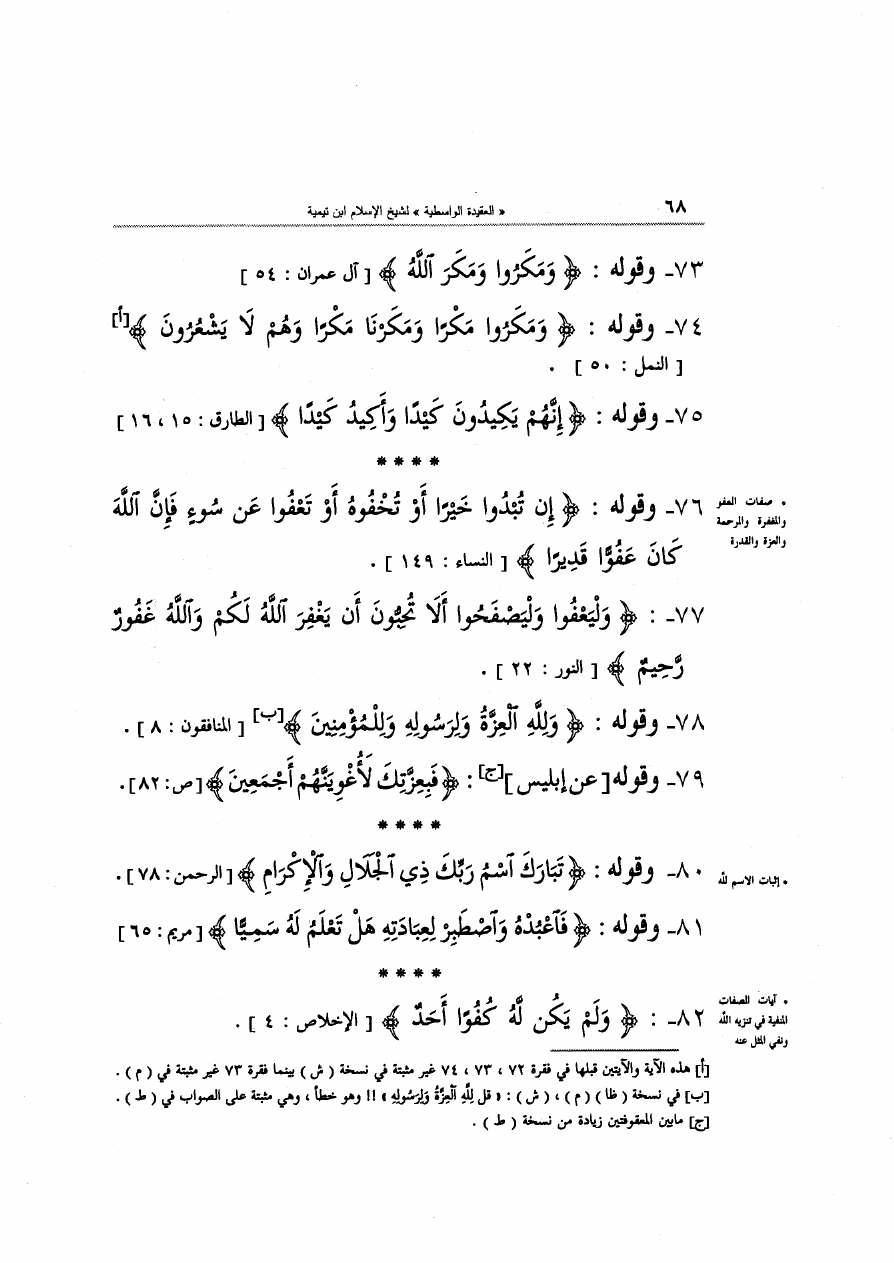 ٦٨
« العقيدة الواسطية » لشيخ الإسلام ابن تيمية
٧٣ـ وقوله : ﴿ وَمَكَرُوا وَمَكَرَ ٱللَّهُ ﴾ [ آل عمران : ٥٤ ]
٧٤ـ وقوله : ﴿ وَمَكَرُوا مَكْرًا وَمَكَرْنَا مَكْرًا وَهُمْ لَا يَشْعُرُونَ ﴾[أ]
[ النمل : ٥٠ ] .
٧٥ـ وقوله : ﴿ إِنَّهُمْ يَكِيدُونَ كَيْدًا وَأَكِيدُ كَيْدًا ﴾ [ الطارق : ١٥ ، ١٦ ]
* * * *
• صفات العفر
والمغفرة والرحمة
والعزة والقدرة
٧٦ـ وقوله : ﴿ إِن تُبْدُوا خَيْرًا أَوْ تُخْفُوهُ أَوْ تَعْفُوا عَن سُوءٍ فَإِنَّ اللَّهَ
كَانَ عَفُوًّا قَدِيرًا ﴾ [ النساء : ١٤٩ ] .
٧٧ـ : ﴿ وَلْيَعْفُوا وَلْيَصْفَحُوا أَلَا تُحِبُّونَ أَن يَغْفِرَ ٱللَّهُ لَكُمْ وَٱللَّهُ غَفُورٌ
رَّحِيمٌ ﴾ [ النور : ٢٢ ] .
٧٨ـ وقوله : ﴿ وَلِلَّهِ ٱلْعِزَّةُ وَلِرَسُولِهِ وَلِلْمُؤْمِنِينَ ﴾[ب] [ المنافقون : ٨ ] .
٧٩ـ وقوله [ عن إبليس ][ج] : ﴿ فَبِعِزَّتِكَ لَأُغْوِيَنَّهُمْ أَجْمَعِينَ ﴾ [ ص : ٨٢ ] .
* * * *
• إثبات الاسم لله
٨٠ـ وقوله : ﴿ تَبَارَكَ ٱسْمُ رَبِّكَ ذِي ٱلْجَلَالِ وَٱلْإِكْرَامِ ﴾ [ الرحمن : ٧٨ ] .
٨١ـ وقوله : ﴿ فَٱعْبُدْهُ وَٱصْطَبِرْ لِعِبَادَتِهِ هَلْ تَعْلَمُ لَهُ سَمِيًّا ﴾ [ مريم : ٦٥ ]
* * * *
• آيات الصفات
المنفية في تنزيه الله
ونفي المثل عنه
٨٢ـ : ﴿ وَلَمْ يَكُن لَّهُ كُفُوًا أَحَدٌ ﴾ [ الإخلاص : ٤ ] .
[أ] هذه الآية والآيتين قبلها في فقرة ٧٢ ، ٧٣ ، ٧٤ غير مثبتة في نسخة ( ش ) بينما فقرة ٧٣ غير مثبتة في ( م ) .
[ب] في نسخة ( ظا ) ( م ) ، ( ش ) : « قل لِلَّهِ ٱلْعِزَّةُ وَلِرَسُولِهِ » !! وهو خطأ ، وهي مثبتة على الصواب في ( ط ) .
[ج] مابين المعقوفتين زيادة من نسخة ( ط ) .